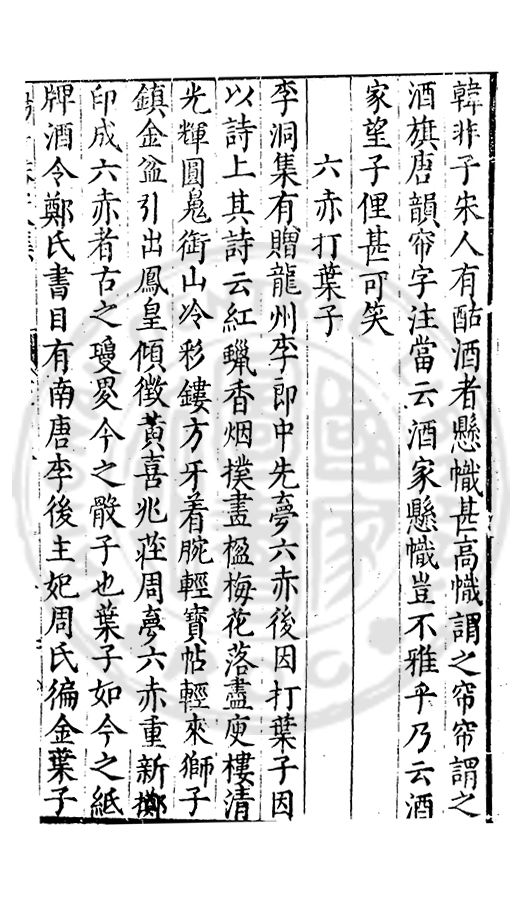 韓非子宋人有酤酒者懸幟甚高幟謂之帘帘謂之
酒旗唐韻帘字注當云酒家懸幟豈不雅乎乃云酒
家望子俚甚可笑
六赤打葉子
李洞集有贈龍州李郎中先夢六赤後因打葉子因
以詩上其詩云紅蠟香烟撲畫楹梅花落盡庾樓清
光輝圓魄銜山冷彩鏤方牙着腕輕寶帖輕來獅子
鎮金盆引出鳳皇傾徵黃喜兆莊周夢六赤重新擲
印成六赤者古之瓊畟今之骰子也葉子如今之紙
牌酒令鄭氏書目有南唐李後主妃周氏徧金葉子